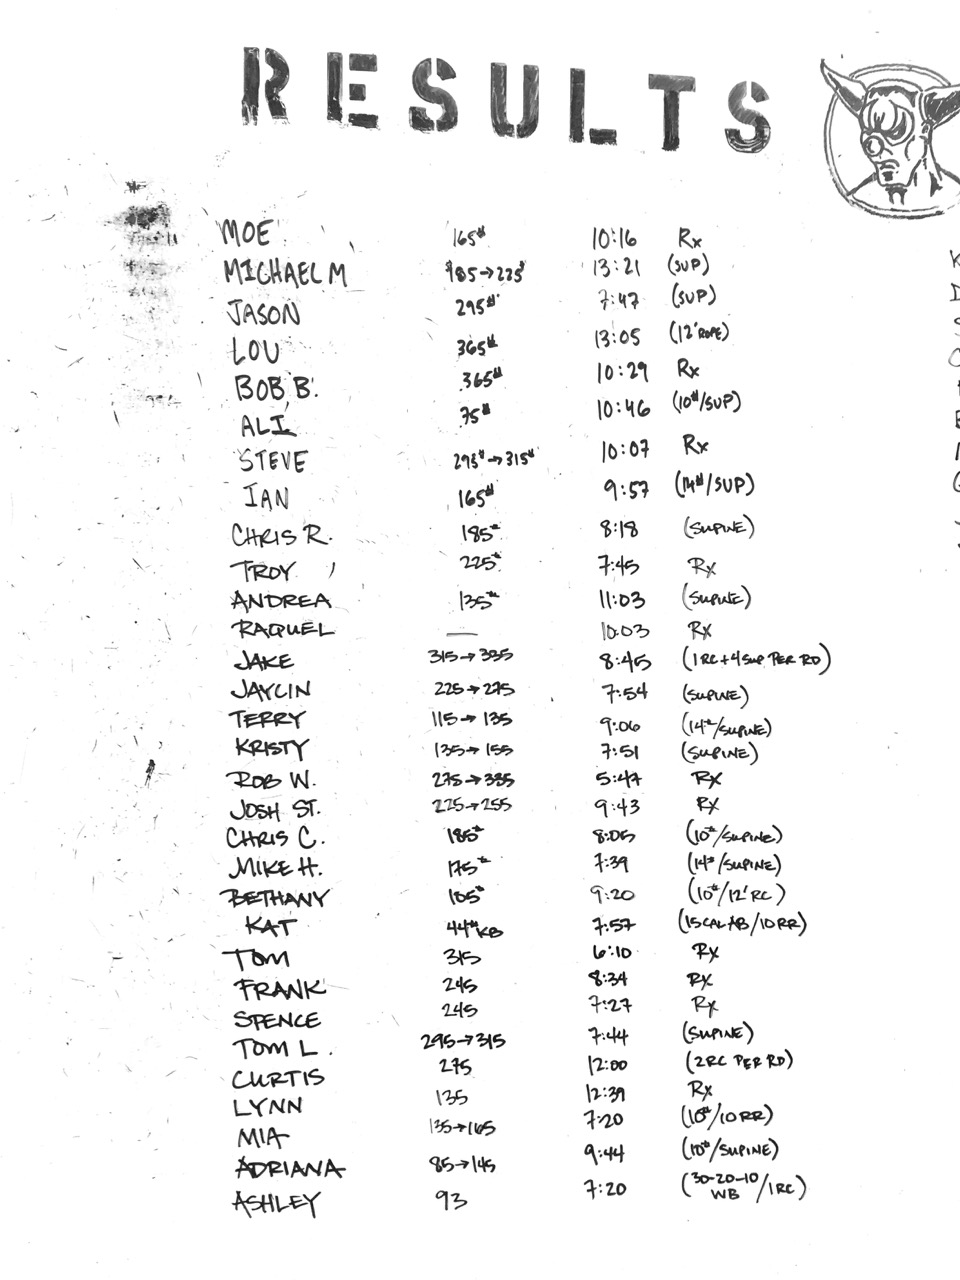 RESULTS
MOE 165# 10:16 Rx
MICHAEL M 185→225# 13:21 (SUP)
JASON 295# 7:47 (SUP)
LOU 365# 13:05 (12' ROPE)
BOB B. 365# 10:29 Rx
ALI 75# 10:46 (10#/SUP)
STEVE 295#→315# 10:07 Rx
IAN 165# 9:57 (14#/SUP)
CHRIS R. 185# 8:18 (SUPINE)
TROY 225# 7:45 Rx
ANDREA 135# 11:03 (SUPINE)
RAQUEL — 10:03 Rx
JAKE 315→335 8:45 (1 RC + 4 SUP PER RD)
JAYLIN 225→275 7:54 (SUPINE)
TERRY 115→135 9:06 (14#/SUPINE)
KRISTY 135→155 7:51 (SUPINE)
ROB W. 275→335 5:47 Rx
JOSH ST. 225→255 9:43 Rx
CHRIS C. 185# 8:05 (10#/SUPINE)
MIKE H. 175# 7:39 (14#/SUPINE)
BETHANY 105# 9:20 (10#/12' RC)
KAT 44# KB 7:57 (15 CAL AB/10 RR)
TOM 315 6:10 Rx
FRANK 245 8:34 Rx
SPENCE 245 7:27 Rx
TOM L. 295→315 7:44 (SUPINE)
CURTIS 275 12:00 (2 RC PER RD)
LYNN 135 12:39 Rx
MIA 135→165 7:20 (10#/10 RR)
ADRIANA 85→145 9:44 (10#/SUPINE)
ASHLEY 93 7:20 (30-20-10 WB/1 RC)